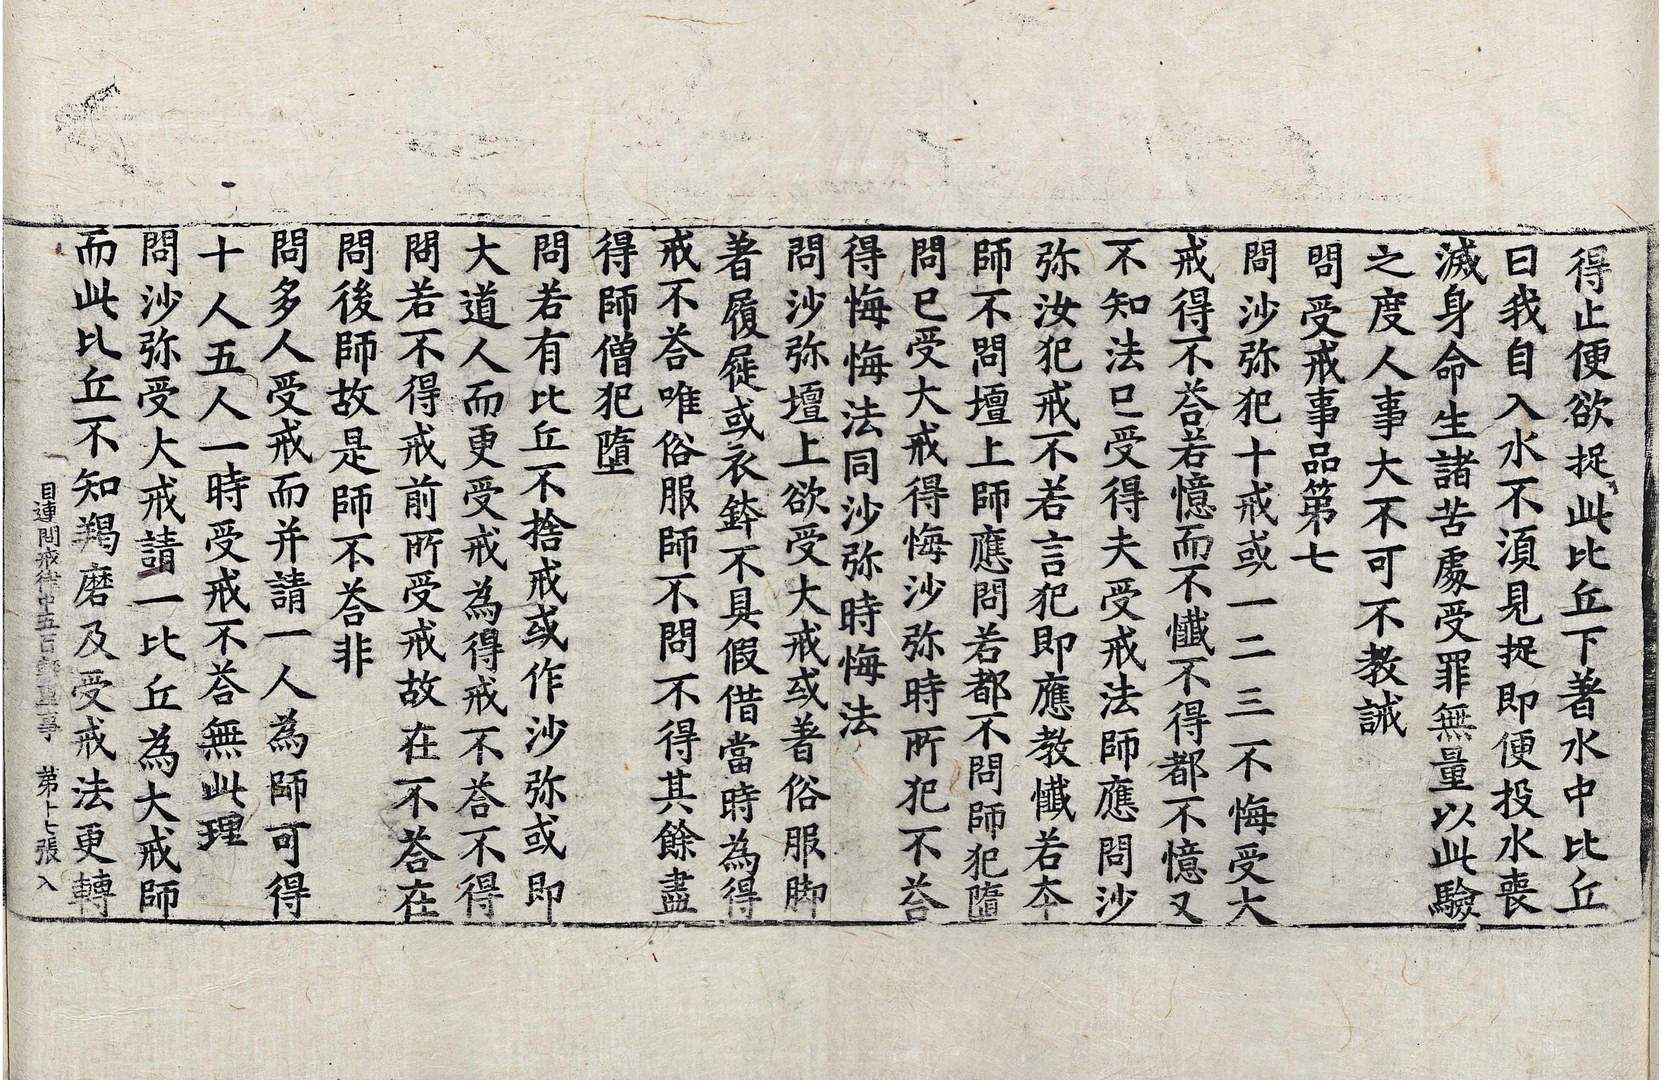 得止便欲捉此比丘下著水中比丘
曰我自入水不湏見捉即便投水喪
滅身命生諸苦處受罪無量以此驗
之度人事大不可不教誡
問受戒事品第七
問沙弥犯十戒或一二三不悔受大
戒得不荅若憶而不懺不得都不憶又
不知法已受得夫受戒法師應問沙
弥汝犯戒不若言犯即應教懺若夲
師不問壇上師應問若都不問師犯墮
問已受大戒得悔沙弥時所犯不荅
得悔悔法同沙弥時悔法
問沙弥壇上欲受大戒或著俗服脚
著履屣或衣鉢不具假借當時為得
戒不荅唯俗服師不問不得其餘盡
得師僧犯墮
問若有比丘不捨戒或作沙弥或即
大道人而更受戒為得戒不荅不得
問若不得戒前所受戒故在不荅在
問後師故是師不荅非
問多人受戒而并請一人為師可得
十人五人一時受戒不荅無此理
問沙弥受大戒請一比丘為大戒師
而此比丘不知羯磨及受戒法更轉
目連問戒律中五百輕重事 第十七張 入